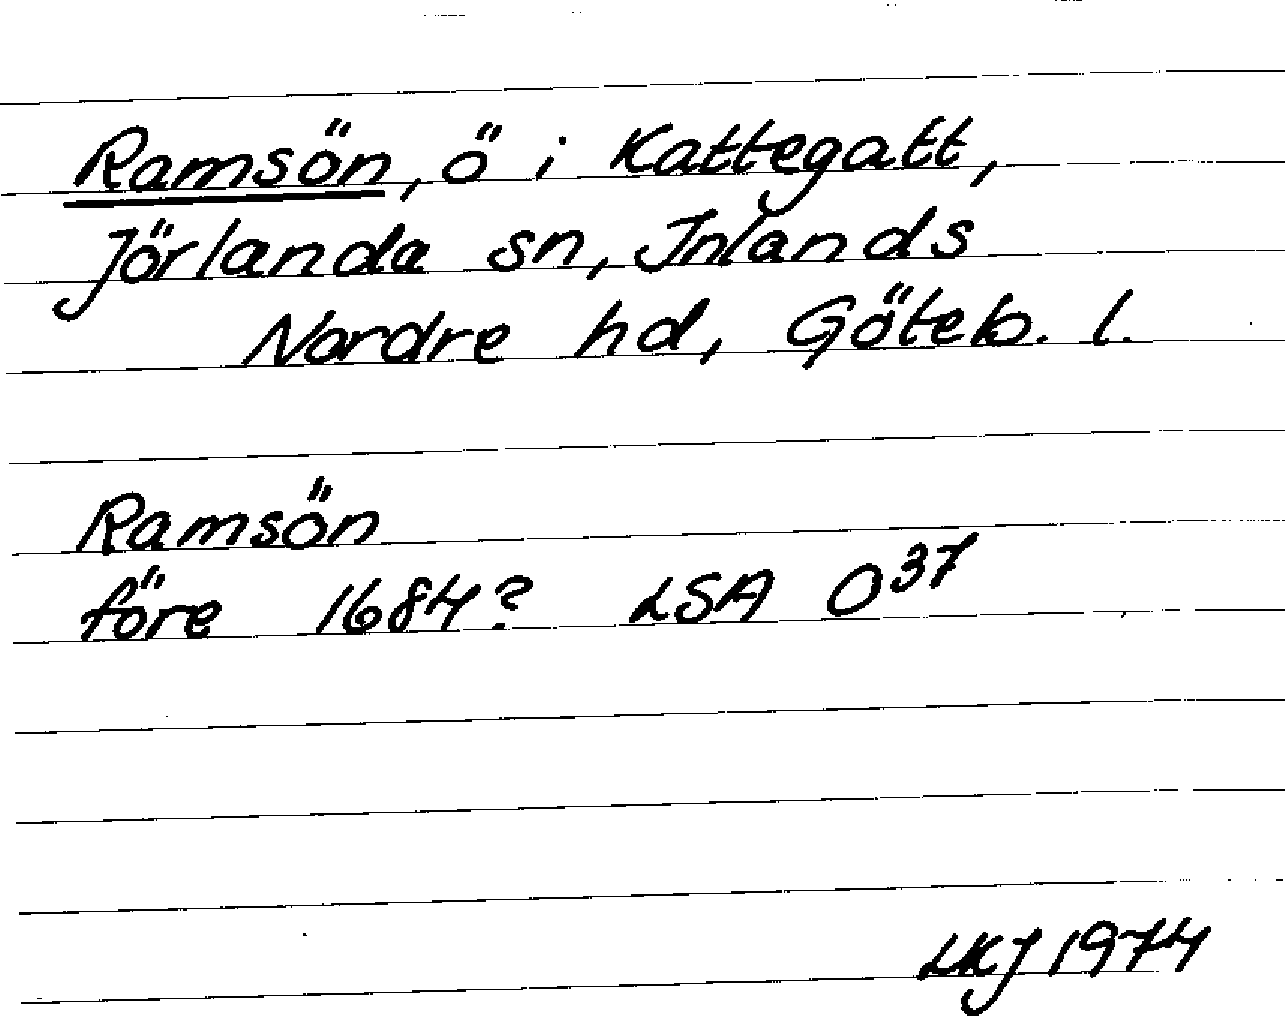 Ramsön, ö i Kattegatt,
Jörlanda sn, Inlands
Nordre hd, Göteb. l.
Ramsön
före 1684? LSA O³⁷
LKJ 1974